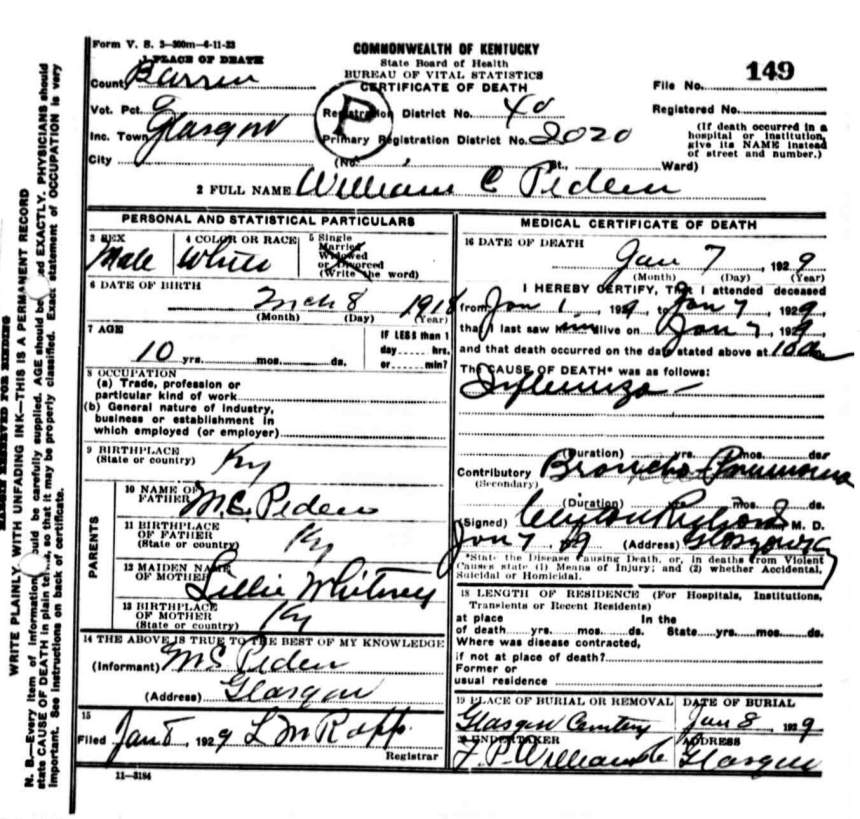 Form V. S. 3-300m-6-11-23
COMMONWEALTH OF KENTUCKY
State Board of Health
BUREAU OF VITAL STATISTICS
CERTIFICATE OF DEATH
1 PLACE OF DEATH
County Barren
File No. 149
Vot. Pct.
Registration District No. 40
Registered No.
Inc. Town Glasgow
Primary Registration District No. 2020
P
(If death occurred in a hospital or institution, give its NAME instead of street and number.)
City
(No. St., Ward)
2 FULL NAME William C Peden
PERSONAL AND STATISTICAL PARTICULARS
3 SEX Male
4 COLOR OR RACE White
5 Single
Married
Widowed
or Divorced
(Write the word)
6 DATE OF BIRTH
Mch 8 1918
(Month) (Day) (Year)
7 AGE
10 yrs. mos. ds.
IF LESS than 1
day hrs.
or min?
8 OCCUPATION
(a) Trade, profession or
particular kind of work
(b) General nature of industry,
business or establishment in
which employed (or employer)
9 BIRTHPLACE
(State or country) Ky
PARENTS
10 NAME OF
FATHER M.S. Peden
11 BIRTHPLACE
OF FATHER
(State or country) Ky
12 MAIDEN NAME
OF MOTHER Lillie Whitney
13 BIRTHPLACE
OF MOTHER
(State or country) Ky
14 THE ABOVE IS TRUE TO THE BEST OF MY KNOWLEDGE
(Informant) M S Peden
(Address) Glasgow
15
Filed Jan 8, 1929 L M Rapp
Registrar
11-3184
MEDICAL CERTIFICATE OF DEATH
16 DATE OF DEATH
Jan 7 1929
(Month) (Day) (Year)
I HEREBY CERTIFY, That I attended deceased
from Jan 1, 1929, to Jan 7, 1929,
that I last saw him alive on Jan 7, 1929
and that death occurred on the date stated above at 10
The CAUSE OF DEATH* was as follows:
Influenza
(Duration) yrs. mos. ds.
Contributory Broncho-Pneumonia
(Secondary)
(Duration) mos. ds.
(Signed) M. D.
Jan 7 1929 (Address) Glasgow Ky
*State the Disease Causing Death, or, in deaths from Violent
Causes state (1) Means of Injury; and (2) whether Accidental,
Suicidal or Homicidal.
18 LENGTH OF RESIDENCE (For Hospitals, Institutions,
Transients or Recent Residents)
at place In the
of death yrs. mos. ds. State yrs. mos. ds.
Where was disease contracted,
if not at place of death?
Former or
usual residence
19 PLACE OF BURIAL OR REMOVAL
Glasgow Cemetery
DATE OF BURIAL
Jan 8, 1929
20 UNDERTAKER
ADDRESS
Glasgow
MARGIN RESERVED FOR BINDING
WRITE PLAINLY, WITH UNFADING INK—THIS IS A PERMANENT RECORD
N. B.—Every item of information should be carefully supplied. AGE should be stated EXACTLY. PHYSICIANS should
state CAUSE OF DEATH in plain terms, so that it may be properly classified. Exact statement of OCCUPATION is very
important. See instructions on back of certificate.